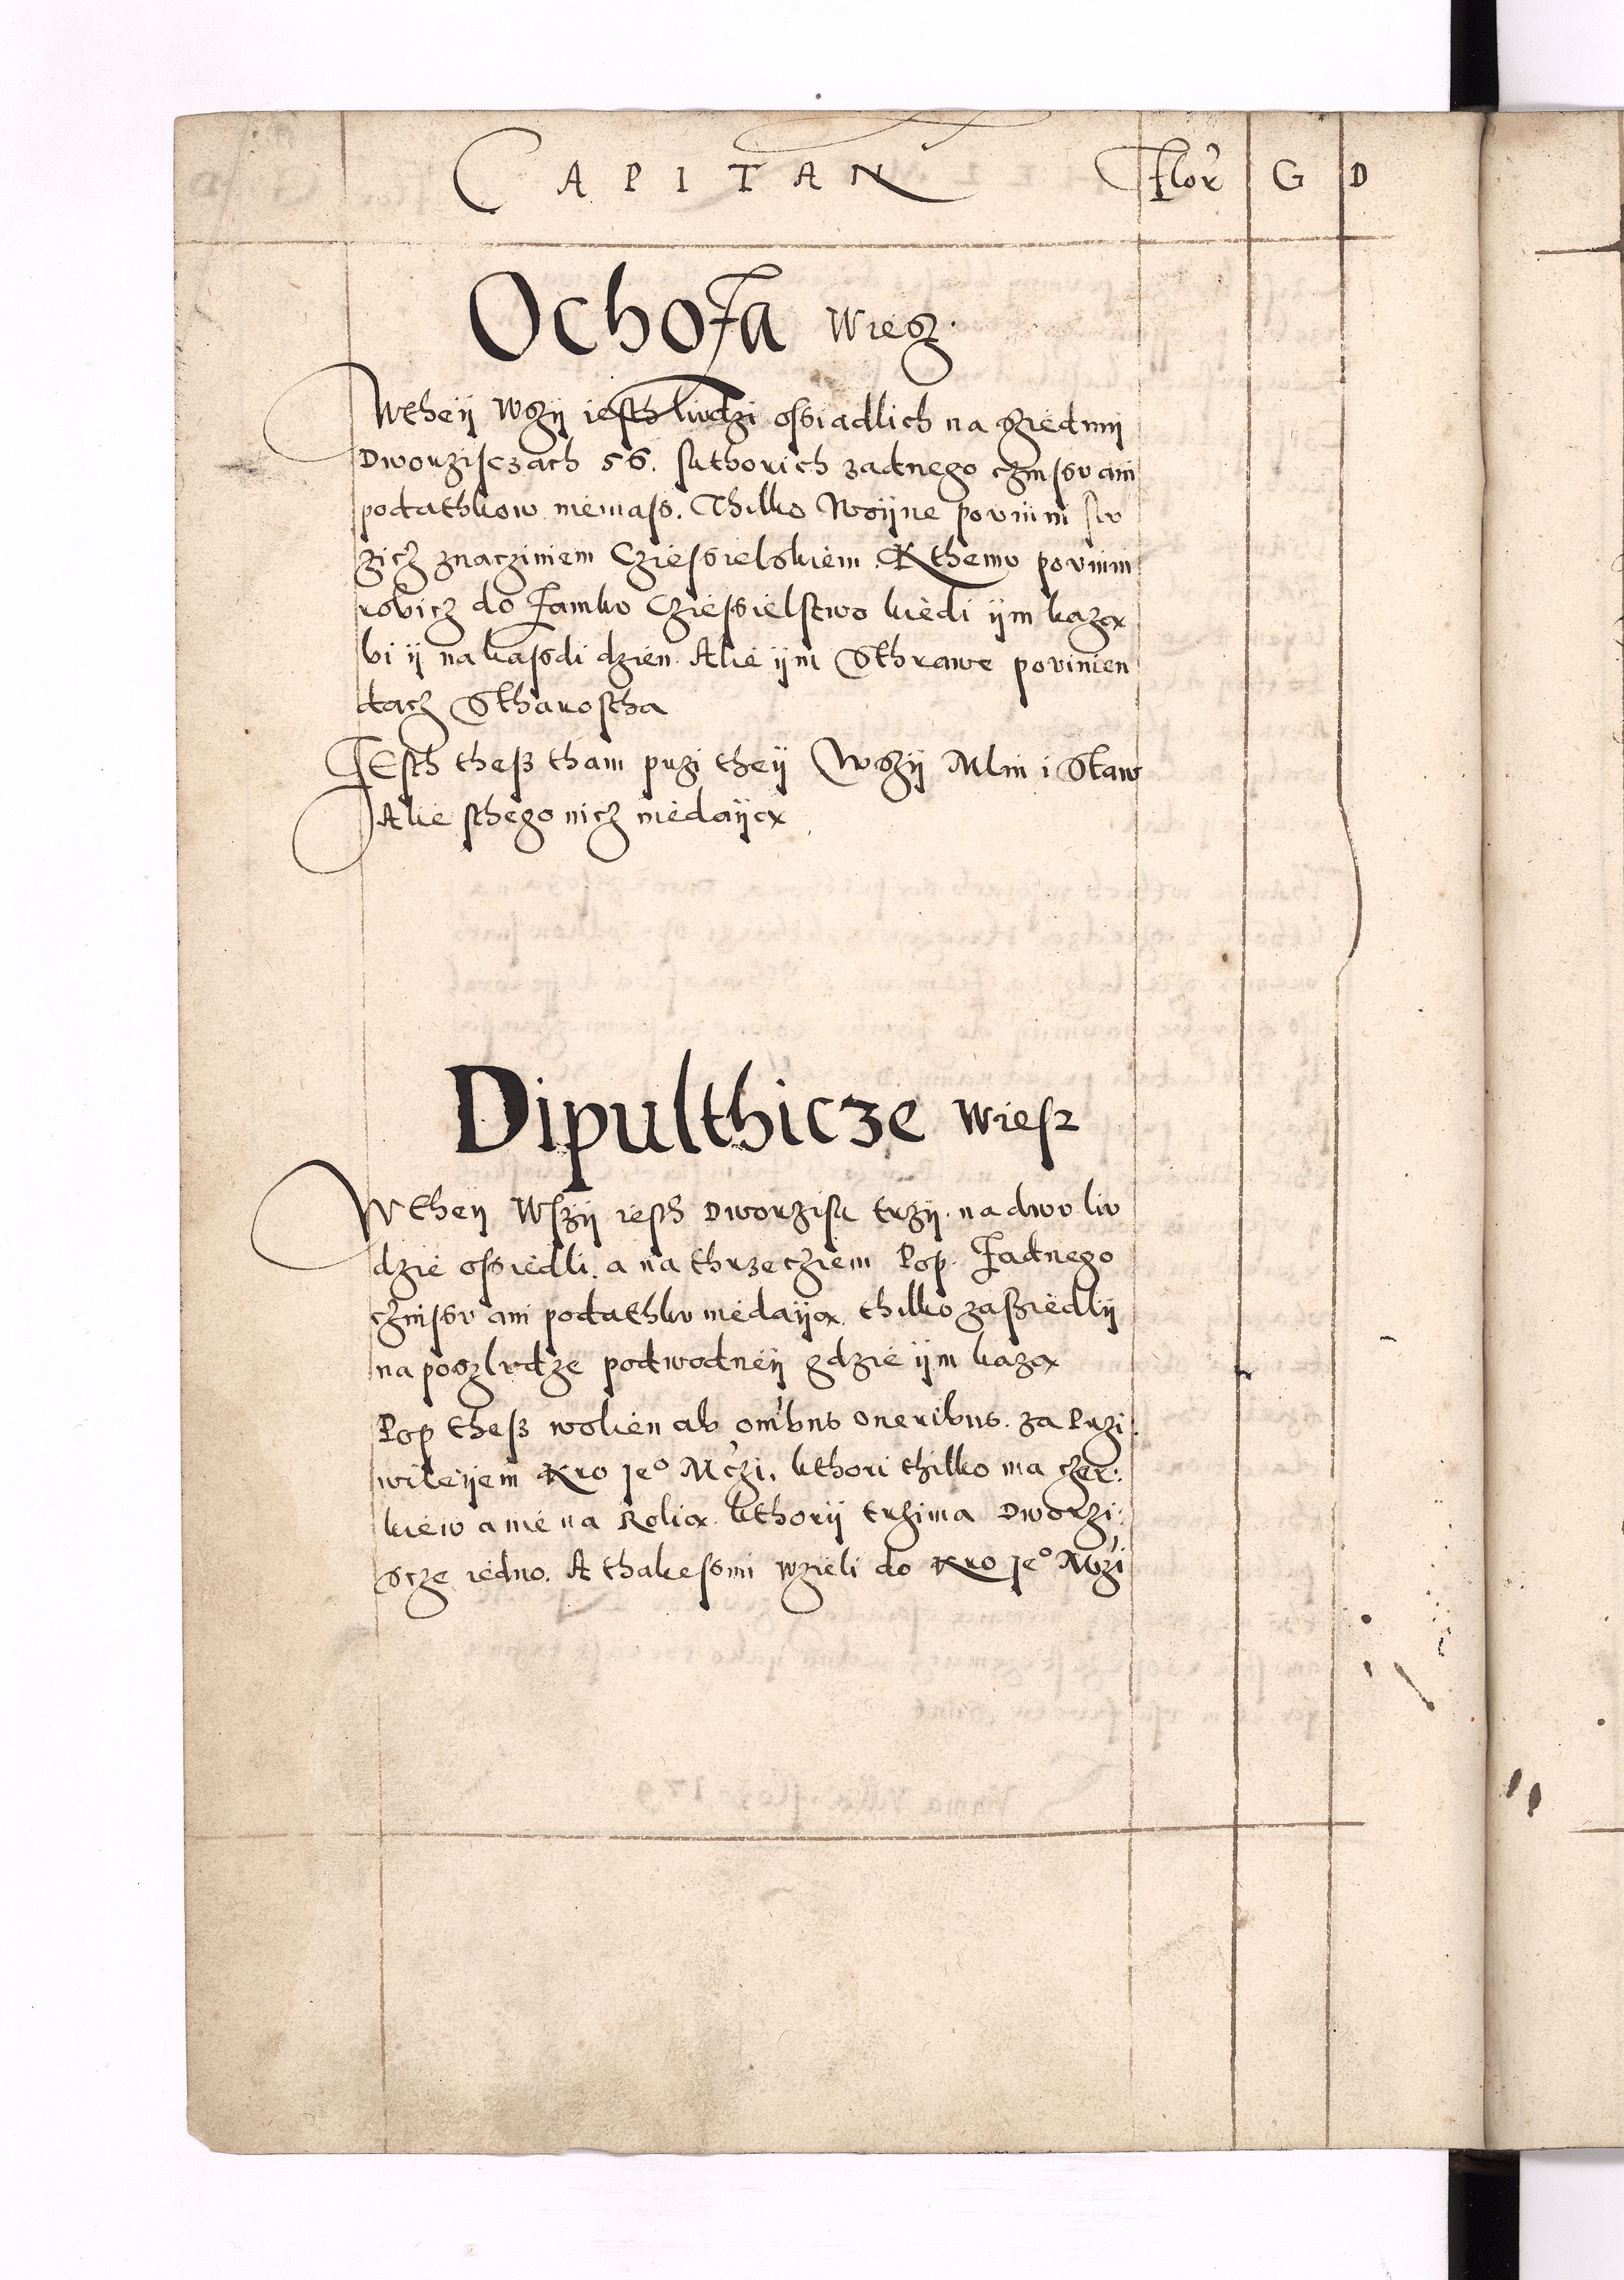 CAPITAN Flor G D
Ochoża Wiesz.
Wtheÿ Wszÿ iesth liudzi ossiadlich na Sziedmÿ
Dworzisczach 56. s kthorich zadnego czinssv ani
podathkow niemass. Thilko Woÿne povinni slv
zicz znacziniem Cziessielskiem. K themv povinni
robicz do Zamkv Cziessielstwo kiedi ÿm kazą
bi ÿ na kassdi dzien. Alie ÿm Sthrawe povinien
dacz Stharostha
Jesth thesz tham przi theÿ Wszÿ Mlin i Staw
Alie sthego nicz niedaÿą
Dipulthicze Wiesz
Wtheÿ Wszÿ iesth Dworziska trzÿ. na dwv liv
dzie ossiedli. a na thrzecziem Pop. Zadnego
czinssv ani podathkv niedaÿą. thilko zasziedlÿ
na poszlvdze podwodneÿ gdzie ÿm kazą
Pop thesz wolien ab omībus oneribus. za Przi:
wileÿem Kro Jeº Mczi. kthori thilko ma czer:
kiew a nie na Rolią. kthorÿ trzima Dworzi:
scze iedno. A thakessmi wzieli do Kro Jeº Mczi